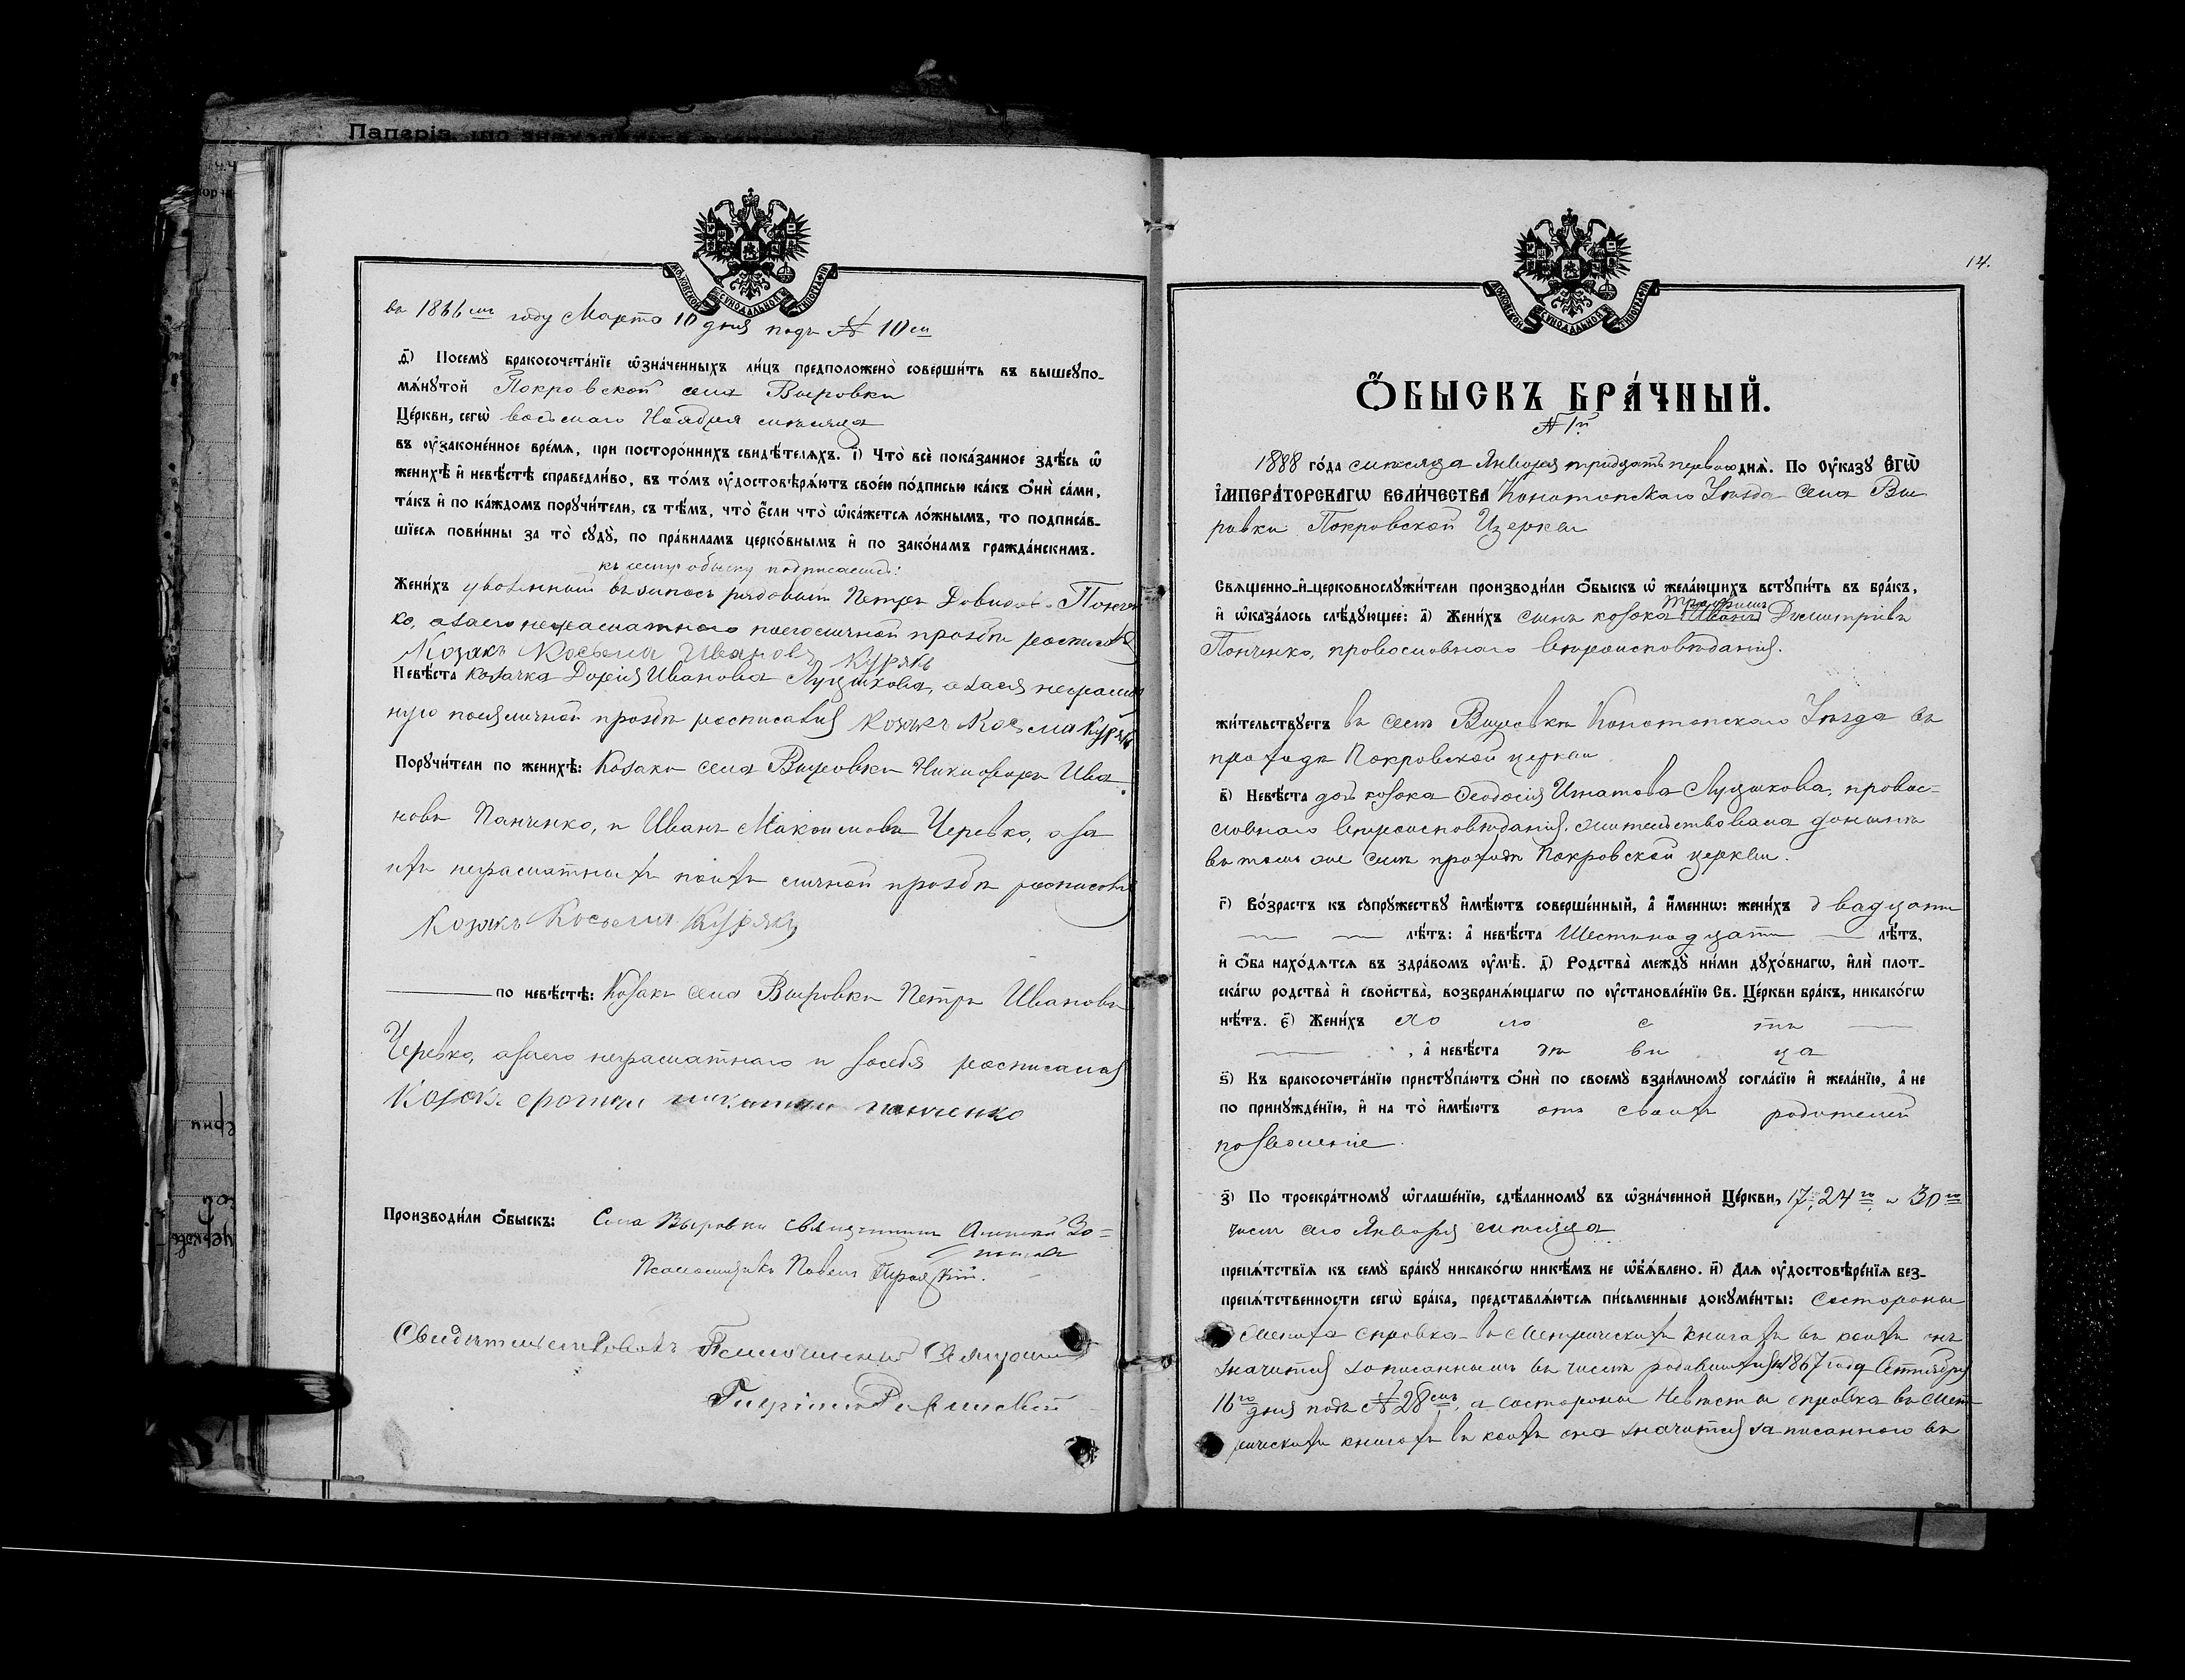 Паперiв, що
въ 1866мъ году Марта 10 дня подъ № 10мъ
д҃) Посемꙋ̀ бракосочета́нїе ѡ҆зна́ченныхъ ли́цъ предположено̀ соверши́ть въ вышеꙋпо-
мѧ́нꙋтой Покровской села Выровки
Це́ркви, сегѡ̀ восьмаго Ноября мѣсяца
въ ᲂу҆законе́нное вре́мѧ, при посторо́ннихъ свидѣ́телѧхъ. і҃) Что̀ всѐ пока́занное здѣ́сь ѡ҆
женихѣ̀ и҆ невѣ́стѣ справедли́во, въ то́мъ ᲂу҆достовѣрѧ́ютъ свое́ю по́дписью ка́къ ѻ҆нѝ са́ми,
та́къ и҆ по ка́ждомъ порꙋчи́тели, съ тѣ́мъ, что̀ є҆́сли что̀ ѡ҆ка́жется ло́жнымъ, то подписа́в-
шїесѧ пови́нны за то̀ сꙋдꙋ̀, по пра́виламъ церко́внымъ и҆ по зако́намъ гражда́нскимъ.
къ сему обыску подписались:
Жени́хъ уволенный въ запасъ рядовый Петръ Давидовъ Пончен
ко, а заего неграматнаго поего личной прозьбѣ росписался
Козакъ Косьма Ивановъ Курякъ
Невѣ́ста козачка Дарія Иванова Луцыкова, а заея неграмат
ную поея личной прозьбѣ росписался Козакъ Косма Курякъ
Порꙋчи́тели по женихѣ̀: Козаки села Выровки Никифоръ Ива
новъ Панченко, и Иванъ Максимовъ Черевко, а за
ихъ неграматныхъ поихъ личной прозьбѣ росписался
Козакъ Косьма Курякъ
по невѣ́стѣ: Козакъ села Выровки Петръ Ивановъ
Черевко, а заего неграматнаго и засебя росписался
Козакъ панченко
Производи́ли ѻ҆́быскъ: Села Выровки священникъ
Псаломщикъ Павелъ
Свидѣтельствовалъ
14.
Ѻ҆́БЫСКЪ БРА́ЧНЫЙ.
№ 1й
1888 го́да мѣсяца Января тридцать перваго днѧ̀. По ᲂу҆ка́зꙋ Є҆ГѠ̀
І҆МПЕРА́ТОРСКАГѠ ВЕЛИ́ЧЕСТВА Конотопскаго Уѣзда села Вы
ровки Покровской Церкви
Свѧще́нно-и҆-церковнослꙋжи́тели производи́ли ѻ҆́быскъ ѡ҆ жела́ющихъ встꙋпи́ть въ бра́къ,
и҆ ѡ҆каза́лось слѣ́дꙋющее: а҃) Жени́хъ сынъ козака Иванъ Димитріевъ
Трофимъ
Понченко, провославнаго вѣроисповѣданія.
жи́тельствꙋетъ въ селѣ Выровкѣ Конотопскаго Уѣзда въ
приходѣ Покровской церкви
в҃) Невѣ́ста дочь козака Ѳеодосія Игнатова Луцыкова, провос-
лавнаго вѣроисповѣданія. жительствовала донынѣ
въ томъ же селѣ приходѣ Покровской церкви.
г҃) Во́зрастъ къ сꙋпрꙋ́жествꙋ и҆мѣ́ютъ соверше́нный, а҆ и҆́меннѡ: жени́хъ двадцати
лѣ́тъ: а҆ невѣ́ста Шестнадцати лѣ́тъ,
и҆ ѻ҆́ба нахо́дѧтсѧ въ здра́вомъ ᲂу҆мѣ̀. д҃) Родства̀ междꙋ̀ ни́ми дꙋхо́внагѡ, и҆лѝ плот-
ска́гѡ родства̀ и҆ сво́йства̀, возбранѧ́ющагѡ по ᲂу҆становле́нїю Св. Це́ркви бра́къ, никако́гѡ
нѣ́тъ. є҃) Жени́хъ хо ло с тъ
, а҆ невѣ́ста дѣ ви ца
ѕ҃) Къ бракосочета́нїю пристꙋпа́ютъ ѻ҆нѝ по своемꙋ̀ взаи́мномꙋ согла́сїю и҆ жела́нїю, а҆ не
по принꙋжде́нїю, и҆ на то̀ и҆мѣ́ютъ отъ своихъ родителей
позволеніе.
з҃) По троекра́тномꙋ ѡ҆глаше́нїю, сдѣ́ланномꙋ въ ѡ҆зна́ченной Це́ркви, 17, 24го и 30го
чиселъ сего Января мѣсяца
препѧ́тствїѧ къ семꙋ̀ бра́кꙋ никако́гѡ никѣ́мъ не ѡ҆б̾ѧ́влено. и҃) Длѧ ᲂу҆достовѣре́нїѧ без-
препѧ́тственности сегѡ̀ бра́ка, представлѧ́ютсѧ пи́сьменные докꙋме́нты: Состороны
Жениха справка въ Метрическихъ книгахъ въ коихъ онъ
значится записаннымъ въ числѣ родившихся 1867 года Сентября
16го дня подъ № 28мъ, а состороны Невѣсты справка въ Мет
рическихъ книгахъ въ коихъ она значится записанною въ